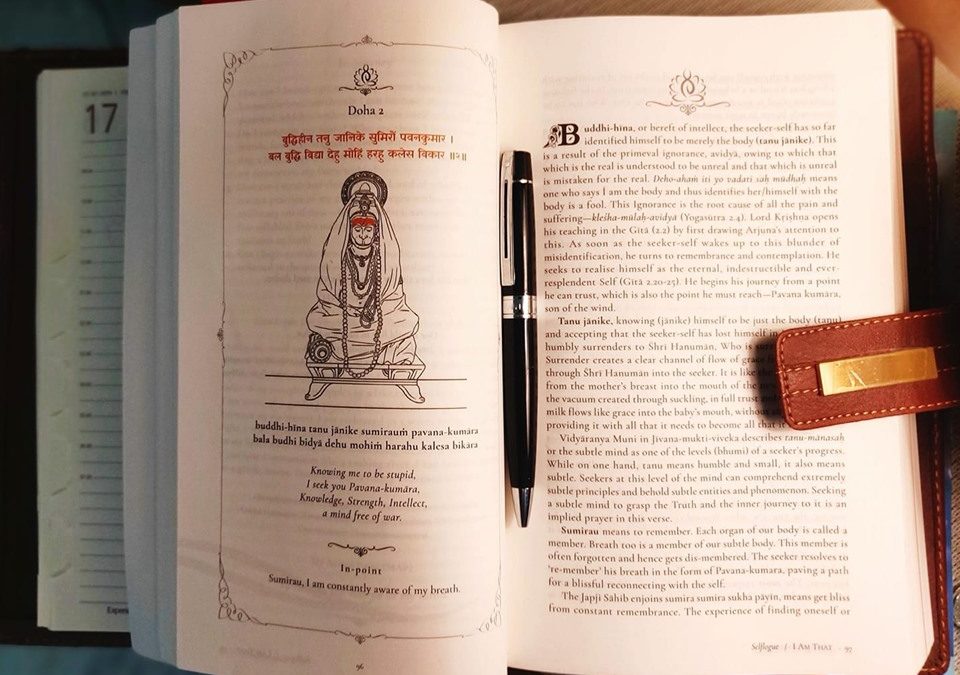 17
Doha 2
बुद्धिहीन तनु जानिके सुमिरौं पवनकुमार ।
बल बुद्धि बिद्या देहु मोहिं हरहु कलेस बिकार ॥२॥
buddhi-hīna tanu jānike sumirauṁ pavana-kumāra
bala budhi bidyā dehu mohiṁ harahu kalesa bikāra
Knowing me to be stupid,
I seek you Pavana-kumāra,
Knowledge, Strength, Intellect,
a mind free of war.
In-point
Sumirau, I am constantly aware of my breath.
96
Buddhi-hīna, or bereft of intellect, the seeker-self has so far
identified himself to be merely the body (tanu jānike). This
is a result of the primeval ignorance, avidyā, owing to which that
which is the real is understood to be unreal and that which is unreal
is mistaken for the real. Deho-ahaṁ iti yo vadati saḥ mūḍhaḥ means
one who says I am the body and thus identifies her/himself with the
body is a fool. This Ignorance is the root cause of all the pain and
suffering—kleśha-mūlaḥ-avidyā (Yogasūtra 2.4). Lord Krishna opens
his teaching in the Gītā (2.2) by first drawing Arjuna's attention to
this. As soon as the seeker-self wakes up to this blunder of
misidentification, he turns to remembrance and contemplation. He
seeks to realise himself as the eternal, indestructible and ever-
resplendent Self (Gītā 2.20-25). He begins his journey from a point
he can trust, which is also the point he must reach—Pavana kumāra,
son of the wind.
Tanu jānike, knowing (jānike) himself to be just the body (tanu)
and accepting that the seeker-self has lost himself in
humbly surrenders to Shri Hanumān, Who is
Surrender creates a clear channel of flow of
through Shrī Hanumān into the seeker. It is like
from the mother's breast into the mouth of the
the vacuum created through suckling, in full trust
milk flows like grace into the baby's mouth,
providing it with all that it needs to become all that
Vidyāraṇya Muni in Jīvana-mukti-viveka describes tanu-mānasaḥ
or the subtle mind as one of the levels (bhumi) of a seeker's progress.
While on one hand, tanu means humble and small, it also means
subtle. Seekers at this level of the mind can comprehend extremely
subtle principles and behold subtle entities and phenomenon. Seeking
a subtle mind to grasp the Truth and the inner journey to it is an
implied prayer in this verse.
Sumirau means to remember. Each organ of our body is called a
member. Breath too is a member of our subtle body. This member is
often forgotten and hence gets dis-membered. The seeker resolves to
're-member' his breath in the form of Pavana-kumara, paving a path
for a blissful reconnecting with the self.
The Japji Sāhib enjoins sumira sumira sukha pāyin, means get bliss
from constant remembrance. The experience of finding oneself or
Selflogue / I AM THAT · 97